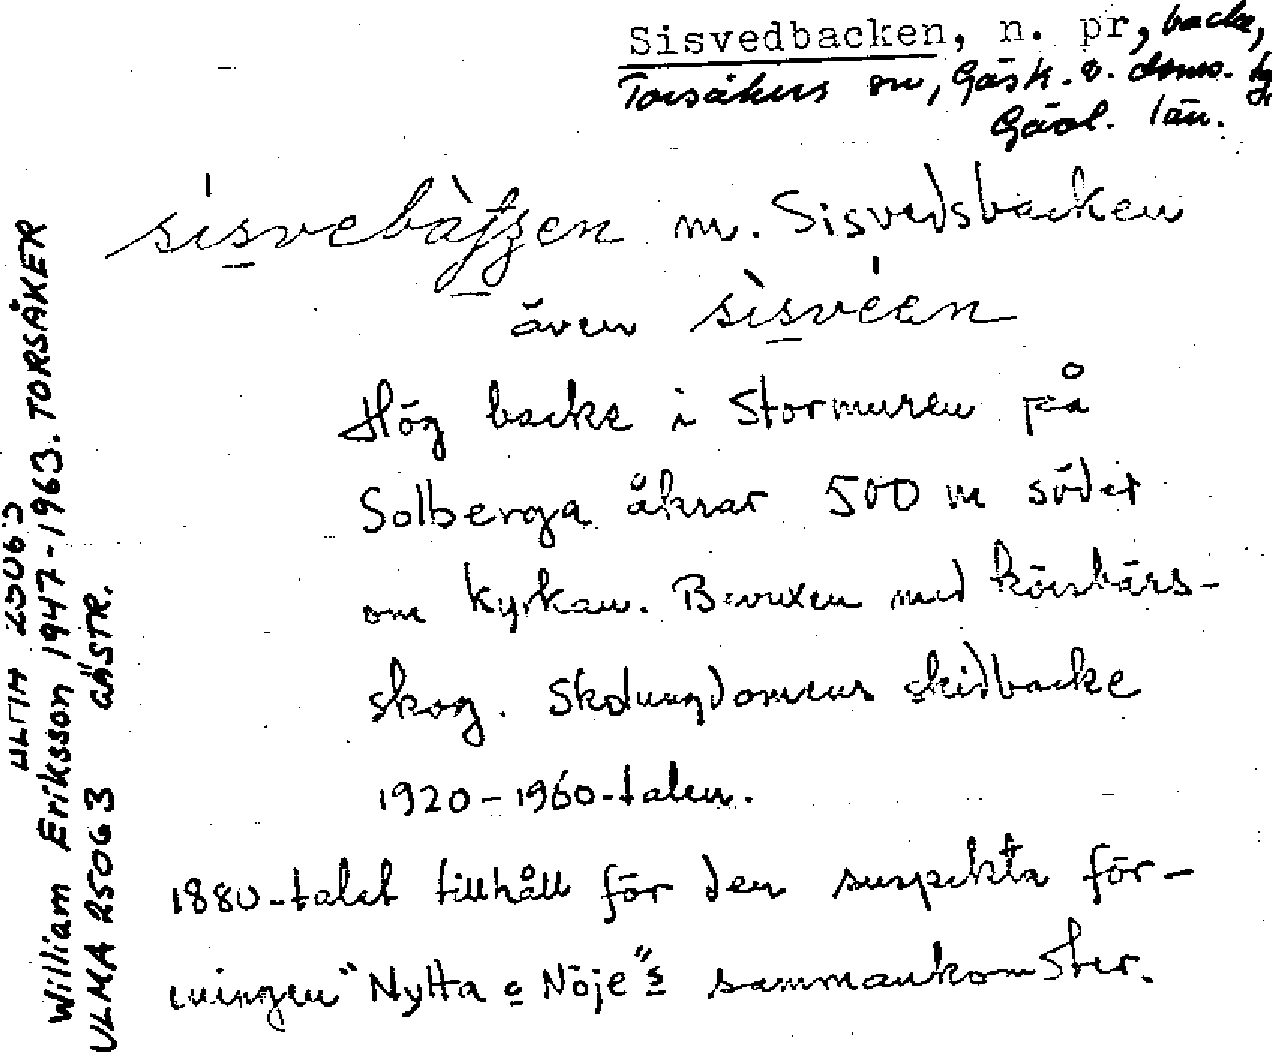 Sisvedbacken, n. pr, backe,
Torsåkers sn, Gäst. ö. doms.
Gävl. län.
sisvebàtʃen m. Sisvedsbacken
även sisvéen
Hög backe i Stormuren på
Solberga åkrar 500 m söder
om kyrkan. Bevuxen med körsbärs-
skog. Skolungdomens skidbacke
1920-1960-talen.
1880-talet tillhåll för den suspekta för-
eningen "Nytta o Nöje"s sammankomster.
ULMA 25063
William Eriksson 1947-1963. TORSÅKER
ULMA 25063 GÄSTR.